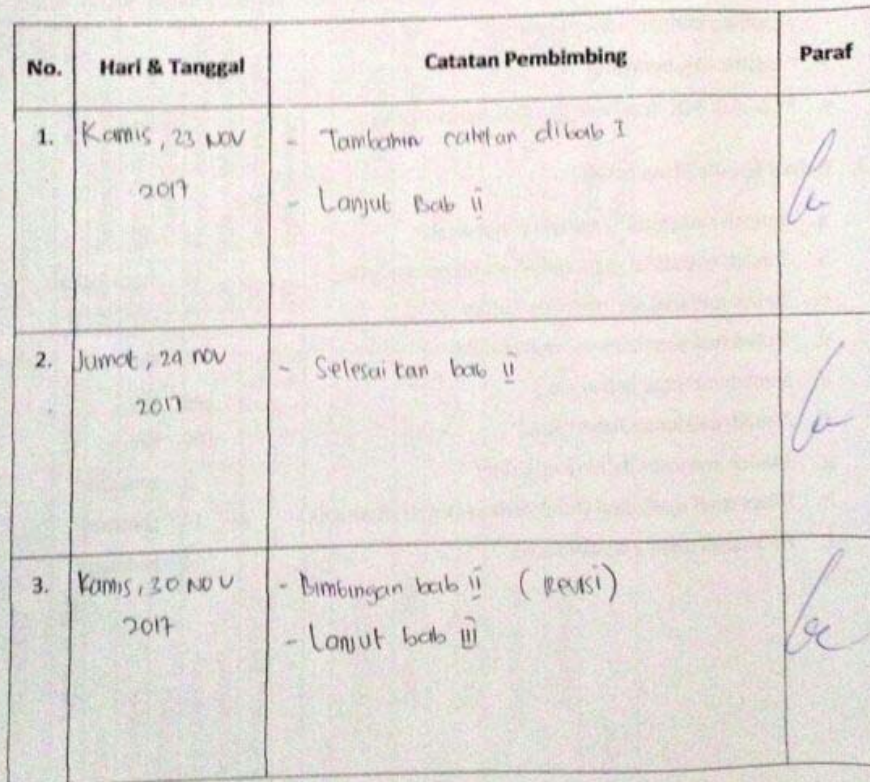 No. Hari & Tanggal Catatan Pembimbing Paraf
1. Kamis, 23 NOV 2017
- Tambahin catatan dibab I
- Lanjut Bab II
2. Jumat, 24 nov 2017
- Selesaikan bab II
3. Kamis, 30 NOV 2017
- Bimbingan bab II (Revisi)
- Lanjut bab III